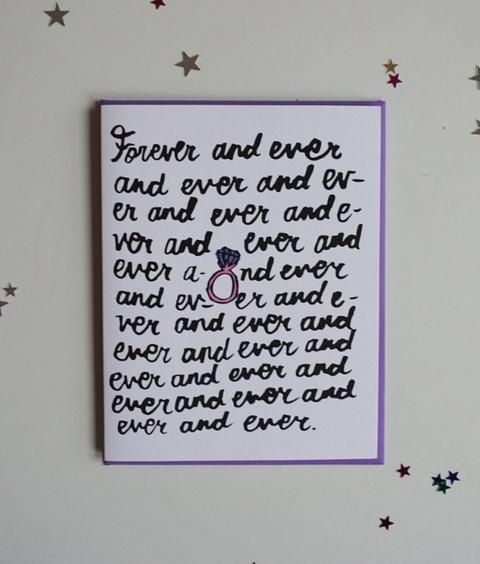 Forever and ever
and ever and ev-
er and ever and e-
ver and ever and
ever a- nd ever
and ev- er and e-
ver and ever and
ever and ever and
ever and ever and
ever and ever and
ever and ever.